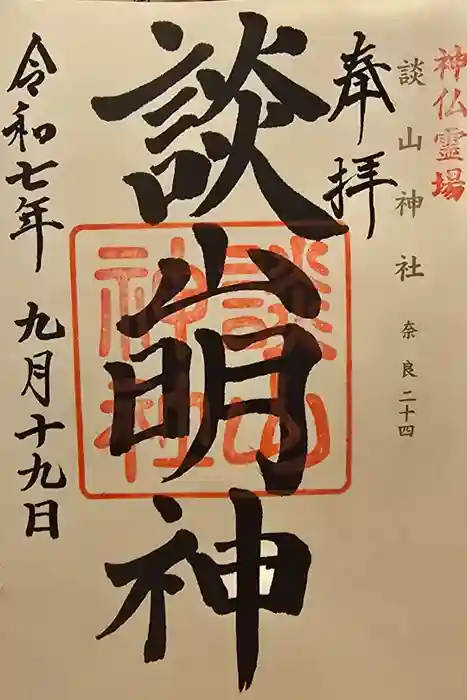 神仏霊場
談山神社 奈良二十四
奉拝
談山明神
談山神社
令和七年 九月十九日